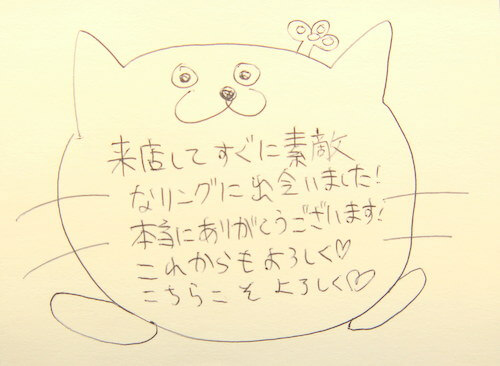 来店してすぐに素敵
なリングに出会いました!
本当にありがとうございます!
これからもよろしく♡
こちらこそよろしく♡